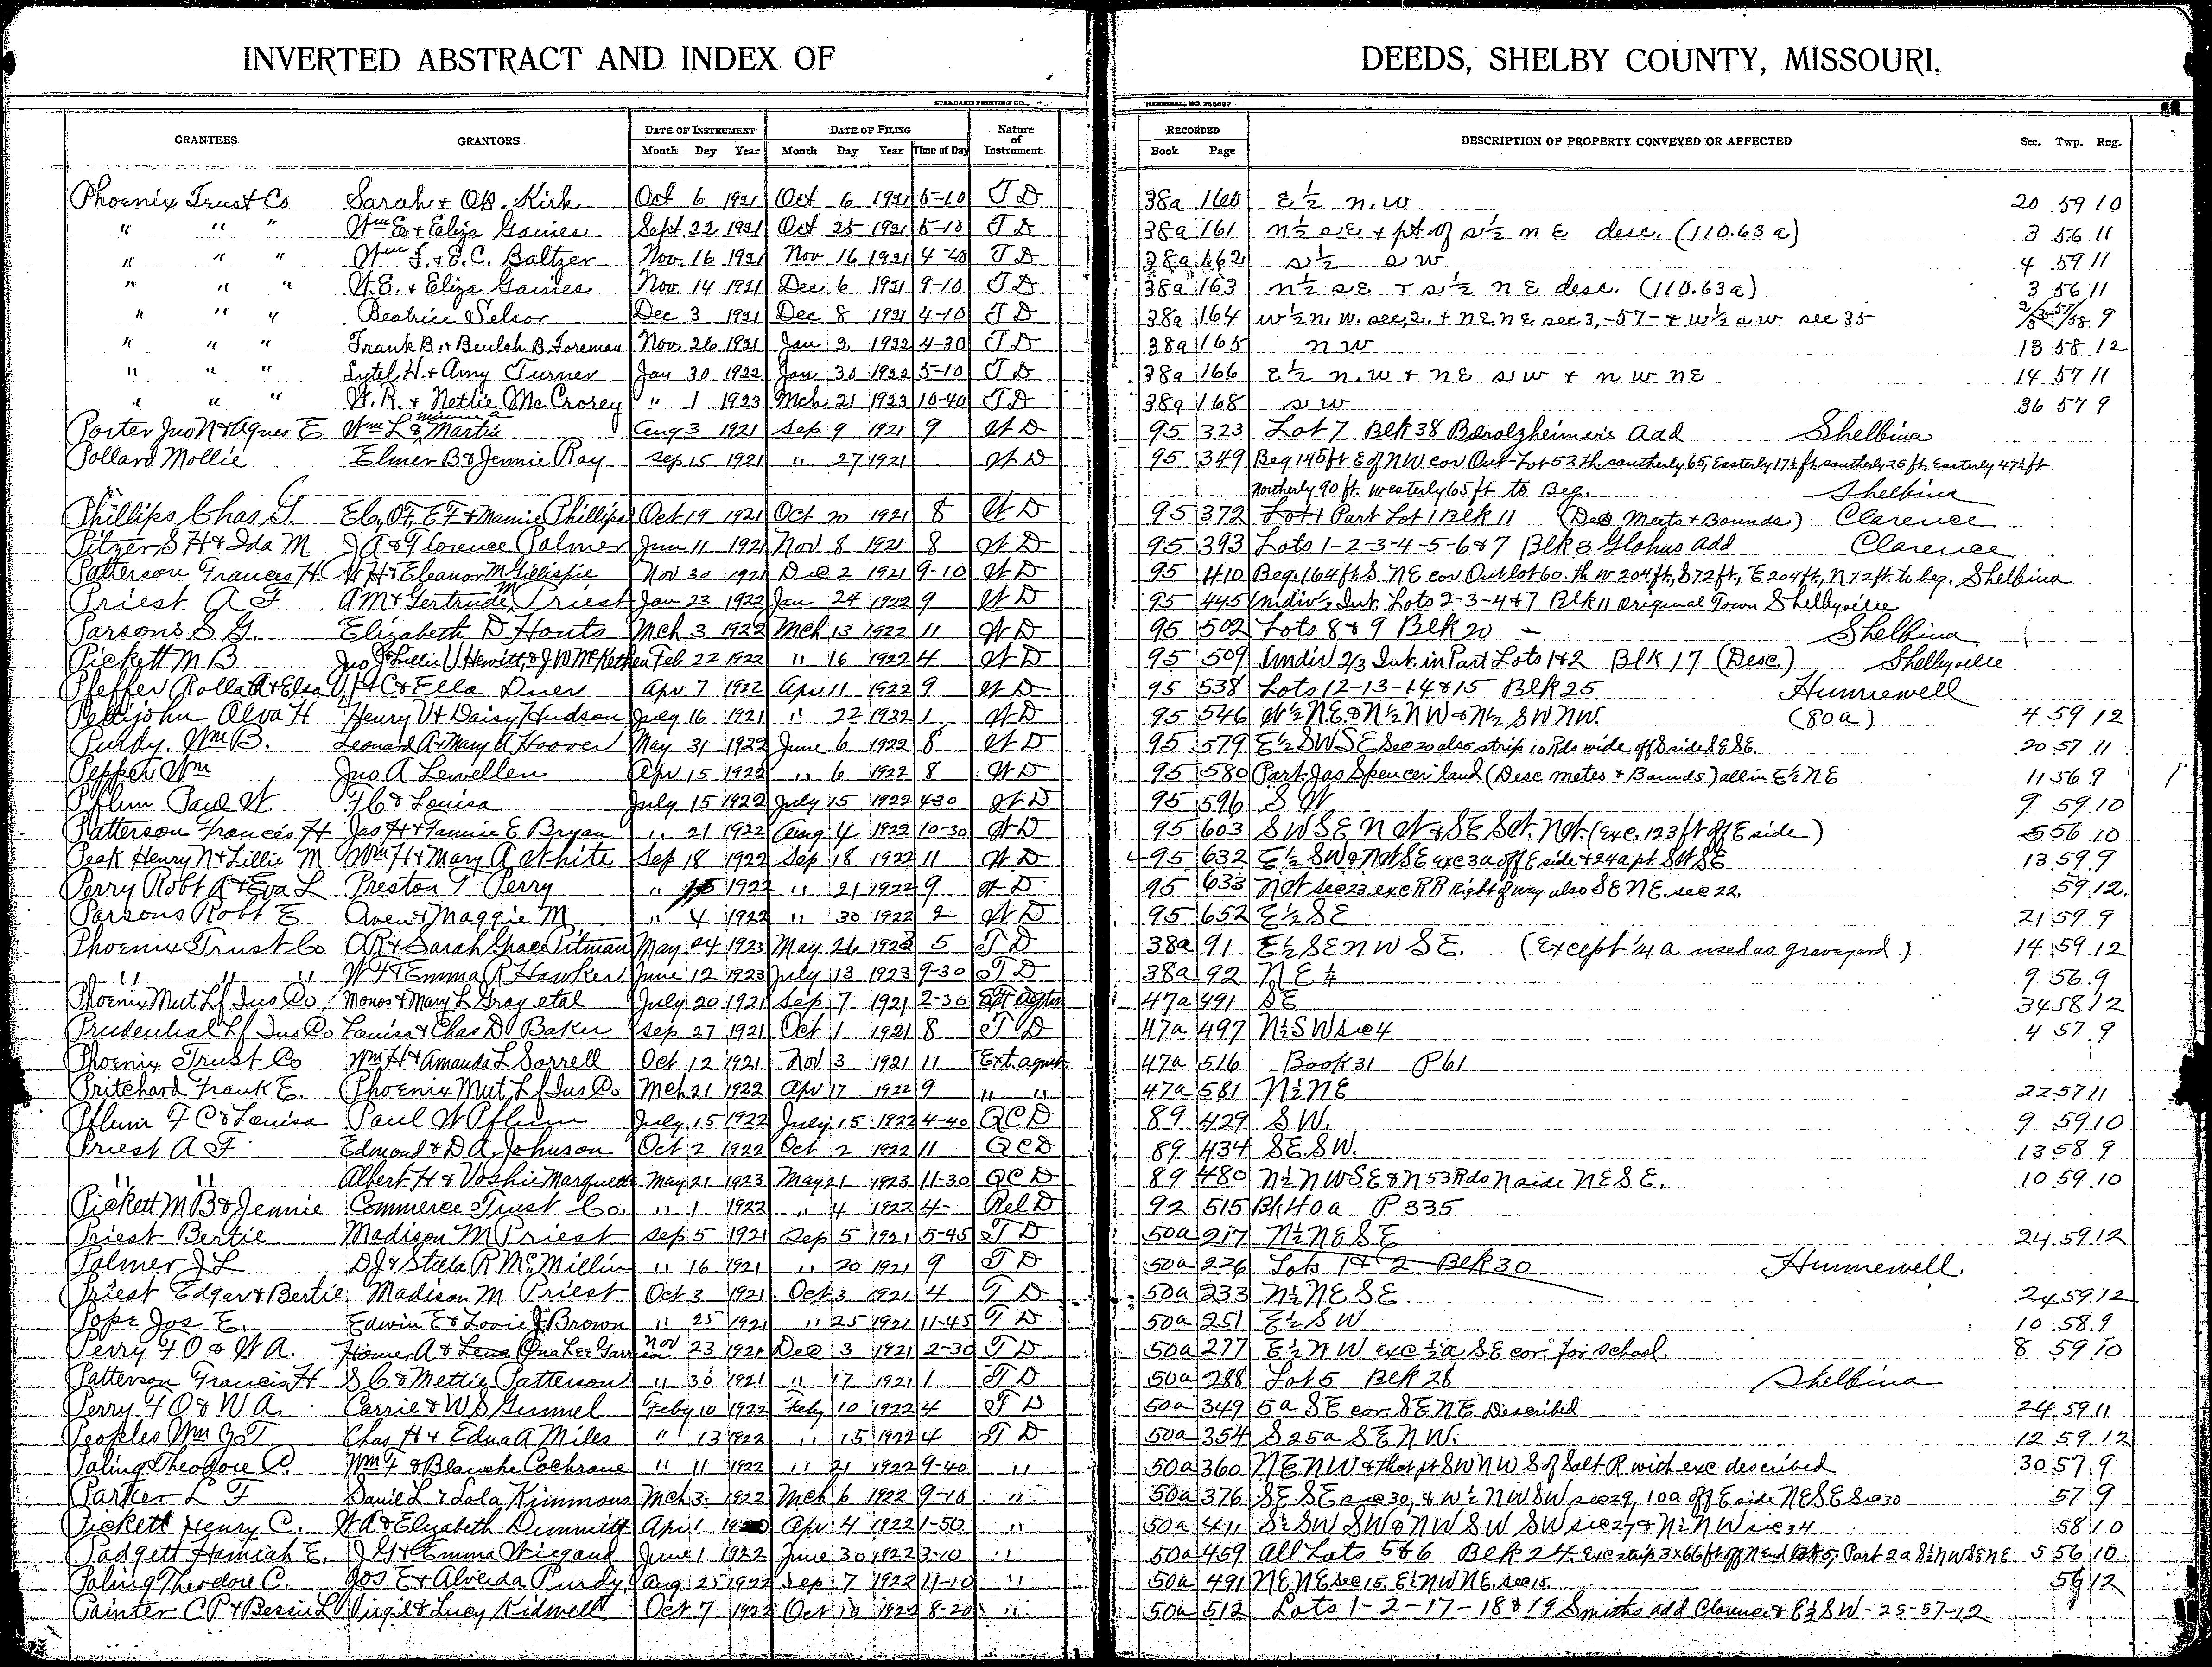 INVERTED ABSTRACT AND INDEX OF DEEDS, SHELBY COUNTY, MISSOURI.
STANDARD PRINTING CO., HANNIBAL, MO. 256897
GRANTEES GRANTORS DATE OF INSTRUMENT DATE OF FILING Nature of Instrument RECORDED DESCRIPTION OF PROPERTY CONVEYED OR AFFECTED Sec. Twp. Rng.
Month Day Year Month Day Year Time of Day Book Page
Phoenix Trust Co Sarah & OB. Kirk Oct 6 1921 Oct 6 1921 5-10 T D 38a 160 E ½ N.W 20 59 10
" " " Wm E. & Eliza Gaines Sept 22 1921 Oct 25 1921 5-10 T D 38a 161 N½ SE & pt of S½ NE desc. (110.63 a) 3 56 11
" " " Wm F. & E.C. Baltzer Nov. 16 1921 Nov 16 1921 4-40 T D 38a 162 S½ SW 4 59 11
" " " W.E. & Eliza Gaines Nov. 14 1921 Dec. 6 1921 9-10 T D 38a 163 N½ SE & S½ NE desc. (110.63a) 3 56 11
" " " Beatrice Selsor Dec 3 1921 Dec 8 1921 4-10 T D 38a 164 W½ N.W. sec,2. & NE NE sec 3,-57- & W½ SW sec 35 9
" " " Frank B. & Beulah B. Foreman Nov. 26 1921 Jan 2 1922 4-30 T D 38a 165 NW 13 58 12
" " " Lytel H. & Amy Turner Jan 30 1922 Jan 30 1922 5-10 T D 38a 166 E½ N.W & NE SW & NW NE 14 57 11
" " " W.R. & Nettie McCrorey " 1 1923 Mch 21 1923 10-40 T D 38a 168 SW 36 57 9
Porter Jno N & Agnes E Wm L & Minnie A Martin Aug 3 1921 Sep 9 1921 9 W D 95 323 Lot 7 Blk 38 Berolzheimers Add Shelbina
Pollard Mollie Elmer B & Jennie Ray Sep 15 1921 " 27 1921 W D 95 349 Beg 145 ft E of NW cor Out-Lot 53 th southerly 65, Easterly 17½ ft southerly 25 ft Easterly 47½ ft.
Northerly 90 ft. westerly 65 ft to Beg. Shelbina
Phillips Chas G. Eb, OF, EF & Mamie Phillips Oct 19 1921 Oct 20 1921 8 W D 95 372 Part Lot 1 Blk 11 (Des Meets & Bounds) Clarence
Pitzer S H & Ida M J A & Florence Palmer Jun 11 1921 Nov 8 1921 8 W D 95 393 Lots 1-2-3-4-5-6 & 7 Blk 3 Glahns Add Clarence
Patterson Frances H. W H & Eleanor M Gillispie Nov 30 1921 Dec 2 1921 9-10 W D 95 410 Beg. 164 ft S NE cor Outlot 60. th W 204 ft, S 72 ft, E 204 ft, N 72 ft. to beg. Shelbina
Priest A F A M & Gertrude M Priest Jan 23 1922 Jan 24 1922 9 W D 95 445 Undiv ½ Int. Lots 2-3-4 & 7 Blk 11 Original Town Shelbyville
Parsons S G. Elizabeth D Houts Mch 3 1922 Mch 13 1922 11 W D 95 502 Lots 8 & 9 Blk 20 Shelbina
Pickett M B Jno J & Lillie V Hewitt & J W McKethen Feb 22 1922 " 16 1922 4 W D 95 509 Undiv 2/3 Int. in Part Lots 1 & 2 Blk 17 (Desc.) Shelbyville
Pfeffer Rolla A & Elsa V. H C & Ella Duer Apr 7 1922 Apr 11 1922 9 W D 95 538 Lots 12-13-14 & 15 Blk 25 Hunnewell
Pettijohn Alva H Henry V & Daisy Hudson July 16 1921 " 22 1922 1 W D 95 546 W½ N.E. & N½ NW & N½ SW NW. (80a) 4 59 12
Purdy. Wm B. Leonard A & Mary A Hoover May 31 1922 June 6 1922 8 W D 95 579 E½ SW SE Sec 20 also strip 10 Rds wide off S side SE SE. 20 57 11
Pepper Wm Jno A Lewellen Apr 15 1922 " 6 1922 8 W D 95 580 Part Jas Spencer land (Desc metes & Bounds) all in E½ NE 11 56 9
Pflum Paul W. F C & Louisa July 15 1922 July 15 1922 430 W D 95 596 S W 9 59 10
Patterson Frances H Jas H & Fannie E Bryan " 21 1922 Aug 4 1922 10-30 W D 95 603 SW SE NW & SE SW. NW. (exc. 123 ft off E side) 5 56 10
Peak Henry N & Lillie M Wm H & Mary A White Sep 18 1922 Sep 18 1922 11 W D 95 632 E½ SW & NW SE exc 3a off E side & 24a pt. SW SE 13 59 9
Perry Robt A & Eva L Preston T Perry " 15 1922 " 21 1922 9 W D 95 633 NW sec 23, exc RR Right of way also SE NE. sec 22. 59 12
Parsons Robt E Aven & Maggie M " 4 1922 " 30 1922 2 W D 95 652 E½ SE 21 59 9
Phoenix Trust Co OR & Sarah Grace Pitman May 24 1923 May 26 1923 5 T D 38a 91 E½ SE NW SE. (Except ¼ a used as graveyard) 14 59 12
" " " W F & Emma R Hawker June 12 1923 July 13 1923 9-30 T D 38a 92 NE ¼ 9 56 9
Phoenix Mut Lf Ins Co Monos & Mary L Gray et al July 20 1921 Sep 7 1921 2-30 47a 491 SE 34 58 12
Prudential Lf Ins Co Louisa & Chas D Baker Sep 27 1921 Oct 1 1921 8 T D 47a 497 N½ SW sec 4 4 57 9
Phoenix Trust Co Wm H & Amanda L Sorrell Oct 12 1921 Nov 3 1921 11 Ext. agmt. 47a 516 Book 31 P 61
Pritchard Frank E. Phoenix Mut Lf Ins Co Mch 21 1922 Apr 17 1922 9 " " 47a 581 N½ NE 22 57 11
Pflum F C & Louisa Paul W Pflum July 15 1922 July 15 1922 4-40 QCD 89 429 S W. 9 59 10
Priest A F Edmond & D A Johnson Oct 2 1922 Oct 2 1922 11 QCD 89 434 SE. SW. 13 58 9
" " Albert H & Voshie Marquett May 21 1923 May 21 1923 11-30 QCD 89 480 N½ NW SE & N 53 Rds N side NE SE. 10 59 10
Pickett M B & Jennie Commerce Trust Co. " 1 1922 " 4 1922 4- Rel D 92 515 Bk 40a P 335
Priest Bertie Madison M Priest Sep 5 1921 Sep 5 1921 5-45 T D 50a 217 N½ NE SE 24 59 12
Palmer J L D J & Stella R McMillin " 16 1921 " 20 1921 9 T D 50a 226 Lots 1 & 2 Blk 30 Hunnewell
Priest Edgar & Bertie Madison M. Priest Oct 3 1921 Oct 3 1921 4 T D 50a 233 N½ NE SE 24 59 12
Pope Jos E. Edwin E & Lovie J Brown " 25 1921 " 25 1921 11-45 T D 50a 251 E½ SW 10 58 9
Perry F O & W A. Homer A & Ona Lee Garrison Nov 23 1921 Dec 3 1921 2-30 T D 50a 277 E½ NW exc ½a SE cor. for school. 8 59 10
Patterson Francis H S C & Mettie Patterson " 30 1921 " 17 1921 1 T D 50a 288 Lot 5 Blk 28 Shelbina
Perry F O & W A. Carrie & W S Gunnel Feby 10 1922 Feby 10 1922 4 T D 50a 349 5a SE cor. SE NE Described 24 59 11
Peoples Wm Chas H & Edna A Miles " 13 1922 " 15 1922 4 T D 50a 354 S 25a SE NW. 12 59 12
Paling Theodore C. Wm F & Blanche Cochrane " 11 1922 " 21 1922 9-40 " 50a 360 NE NW & that pt SW NW S of Salt R with exc described 30 57 9
Parker L F Daniel L & Lola Kimmons Mch 3 1922 Mch 6 1922 9-10 " 50a 376 SE SE sec 30, & W½ NW SW sec 29, 10a off E side NE SE Sec 30 57 9
Pickett Henry C. W A & Elizabeth Dimmitt Apr 1 Apr 4 1922 1-50 " 50a 411 S½ SW SW & NW SW SW sec 27 & N½ NW sec 34 58 10
Padgett Hamiah E. J G & Emma Wiegand June 1 1922 June 30 1922 3-10 " 50a 459 All Lots 5 & 6 Blk 24. Exc strip 3x66 ft off N end Lot 5; Part 2a S½ NW SE NE 5 56 10
Paling Theodore C. Jos E & Alveida Purdy Aug 25 1922 Sep 7 1922 11-10 " 50a 491 NE NE sec 15. E½ NW NE. sec 15. 56 12
Painter C P & Bessie L Virgil & Lucy Kidwell Oct 7 1922 Oct 10 1922 8-20 " 50a 512 Lots 1-2-17-18 & 19 Smiths add Clarence & E½ SW - 25-57-12